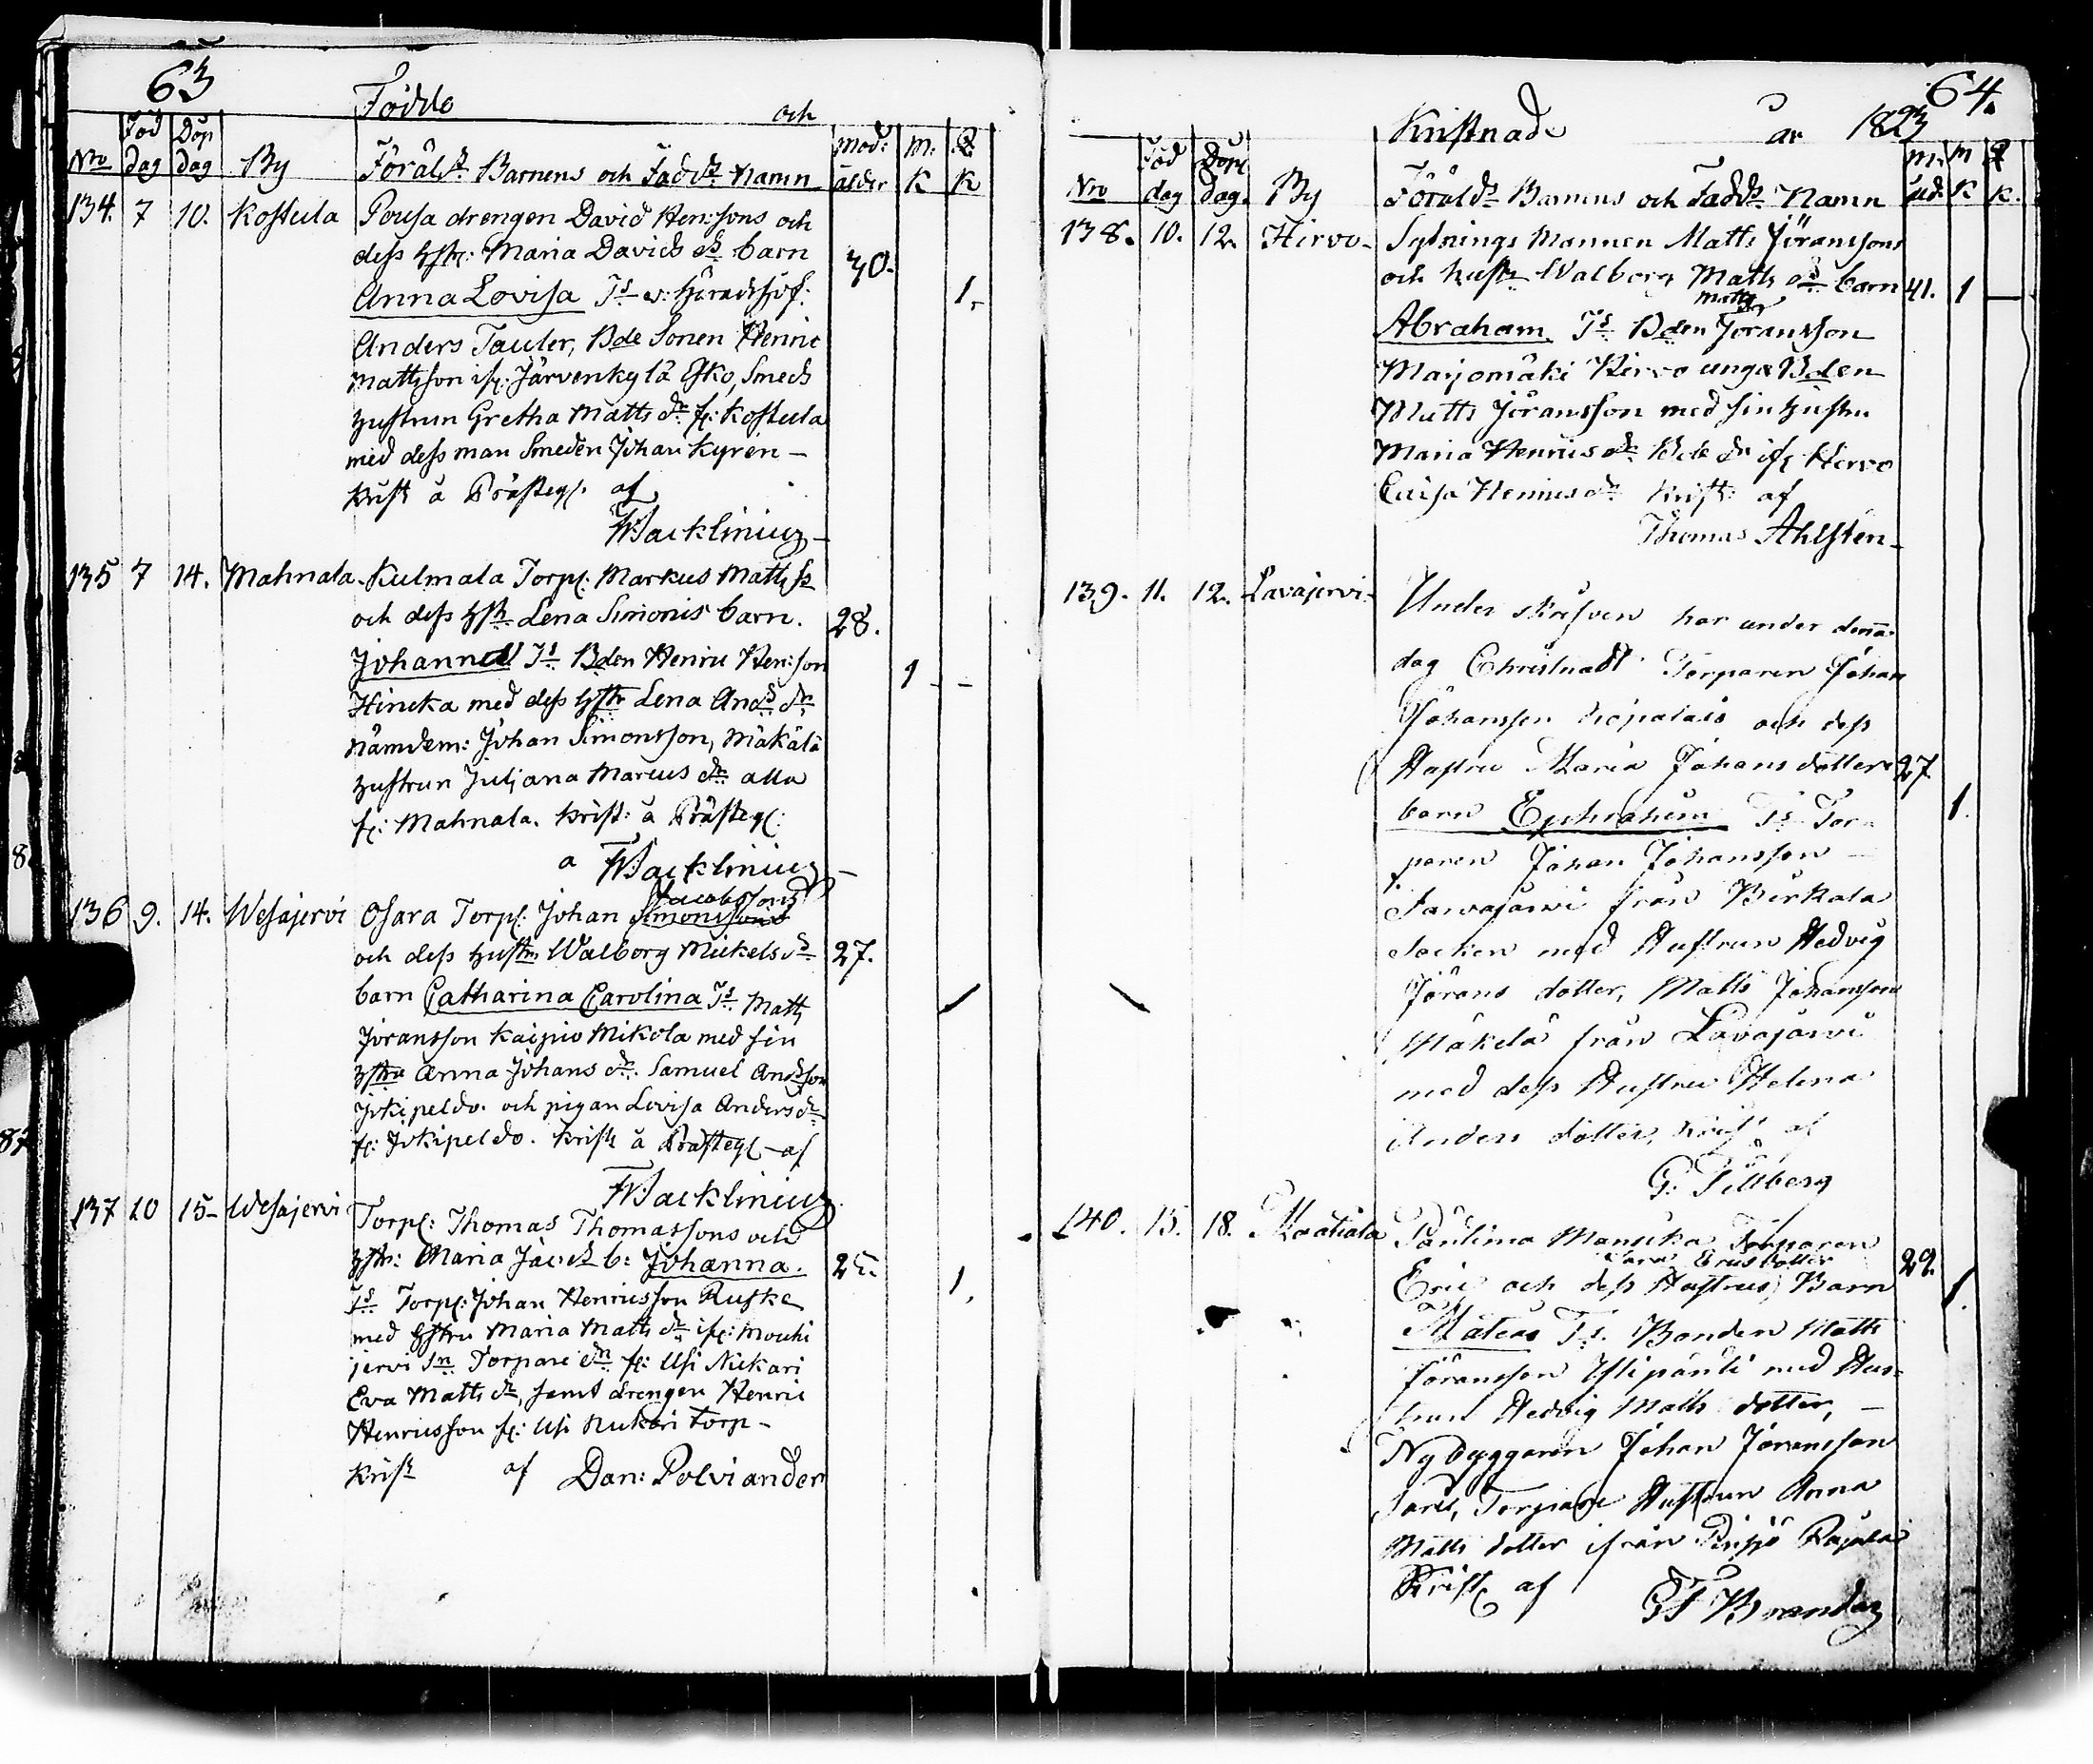 63
Födde och
Nro Föd dag Döp dag By Föräldrs Barnens och Fadds Namn Mod: ålder M: K Q K
134. 7 10. Kostula Pousa drengen David Hen:sons och
dess hstr: Maria Davids dr barn 30.
Anna Lovisa Ts v: häradshöf: 1.
Anders Tauler, Bde Sonen Henric
Mattsson ifr: Järvenkylä Esko, Smeds
hustrun Gretha Matts dr fr: Kostula
med dess man Smeden Johan Kyrén –
Krist å Prästeg: af
Wacklinius –
135 7 14. Mahnala Kulmala Torp: Markus Matts
och dess hstr Lena Simonis barn. 28.
Johannes Ts Bden Henric Hen:son 1 –
Hineka med dess hstr Lena Ands dr
Nämdem: Johan Simonsson, Mäkälä
hustrun Juljana Marcus dr alla
fr: Mahnala. Krist: å Prästeg:
a Wacklinius –
136 9. 14. Wesajervi Osara Torp: Johan Simonssons Jacobssons
och dess hustru Walborg Mickels dr 27.
barn Catharina Carolina Ts Matts
Joransson Kaipio Mikola med sin
hstru Anna Johans dr. Samuel Andsson
Jokipeldo. och pigan Lovisa Anders dr
fr: Jokipeldo. Krist å Prästeg – af
Wacklinius
137 10 15 – Wesajervi Torp: Thomas Thomassons och
hstr: Maria Jacds b: Johanna. 25.
Ts Torp: Johan Henricsson Ruske 1.
med hstru Maria Matts dr ifr: Mouhi
jervi Sn Torpare dr fr: Usi Nickari
Eva Matts dr, samt drengen Henric
Henricsson fr: Usi Nickari torp –
Krist af Dan: Polviander
64.
Kristnade år 1823
Nro Föd dag Döpe dag. By Föräldrs Barnens och Fadds Namn M. åld. M K Q K.
138. 10. 12. Hirvo – Sytnings Mannen Matts Jöranssons
och hustr Walborg Matts dr barn 41. 1 –
Matts
Abraham Ts Bden Joransson
Marjomäki Hirvo unga Bden
Matts Jöransson med sin hustru
Maria Henrics dr Bde dr ifr Hirvo
Caisa Henrics dr Krist: af
Thomas Ahlsten –
139. 11. 12. Lavajervi Under skrifven har under denna
dag Christnadt Torparen Johan
Johansson och dess
Hustru Maria Johans dotters 27
barn Ephrahim Ts Tor- 1.
paren Johan Johansson –
från Birkala
Socken med Hustrun Hedvig
Jörans dotter, Matts Johansson
Mäkelä från Lavajärvi
med dess Hustru Helena
Anders dotter, krist af
G. Tillberg
140. 15. 18. Kaatiala Torparen
Sara Ericsdotter
Eric och dess Hustrus Barn 29.
Mateus Ts. Bonden Matts 1.
Jöransson med Hus-
trun Hedvig Matts dotter, –
Nybyggaren Johan Joransson
Torpare Hustrun Anna
Matts dotter ifrån Pinsjö
Krist af